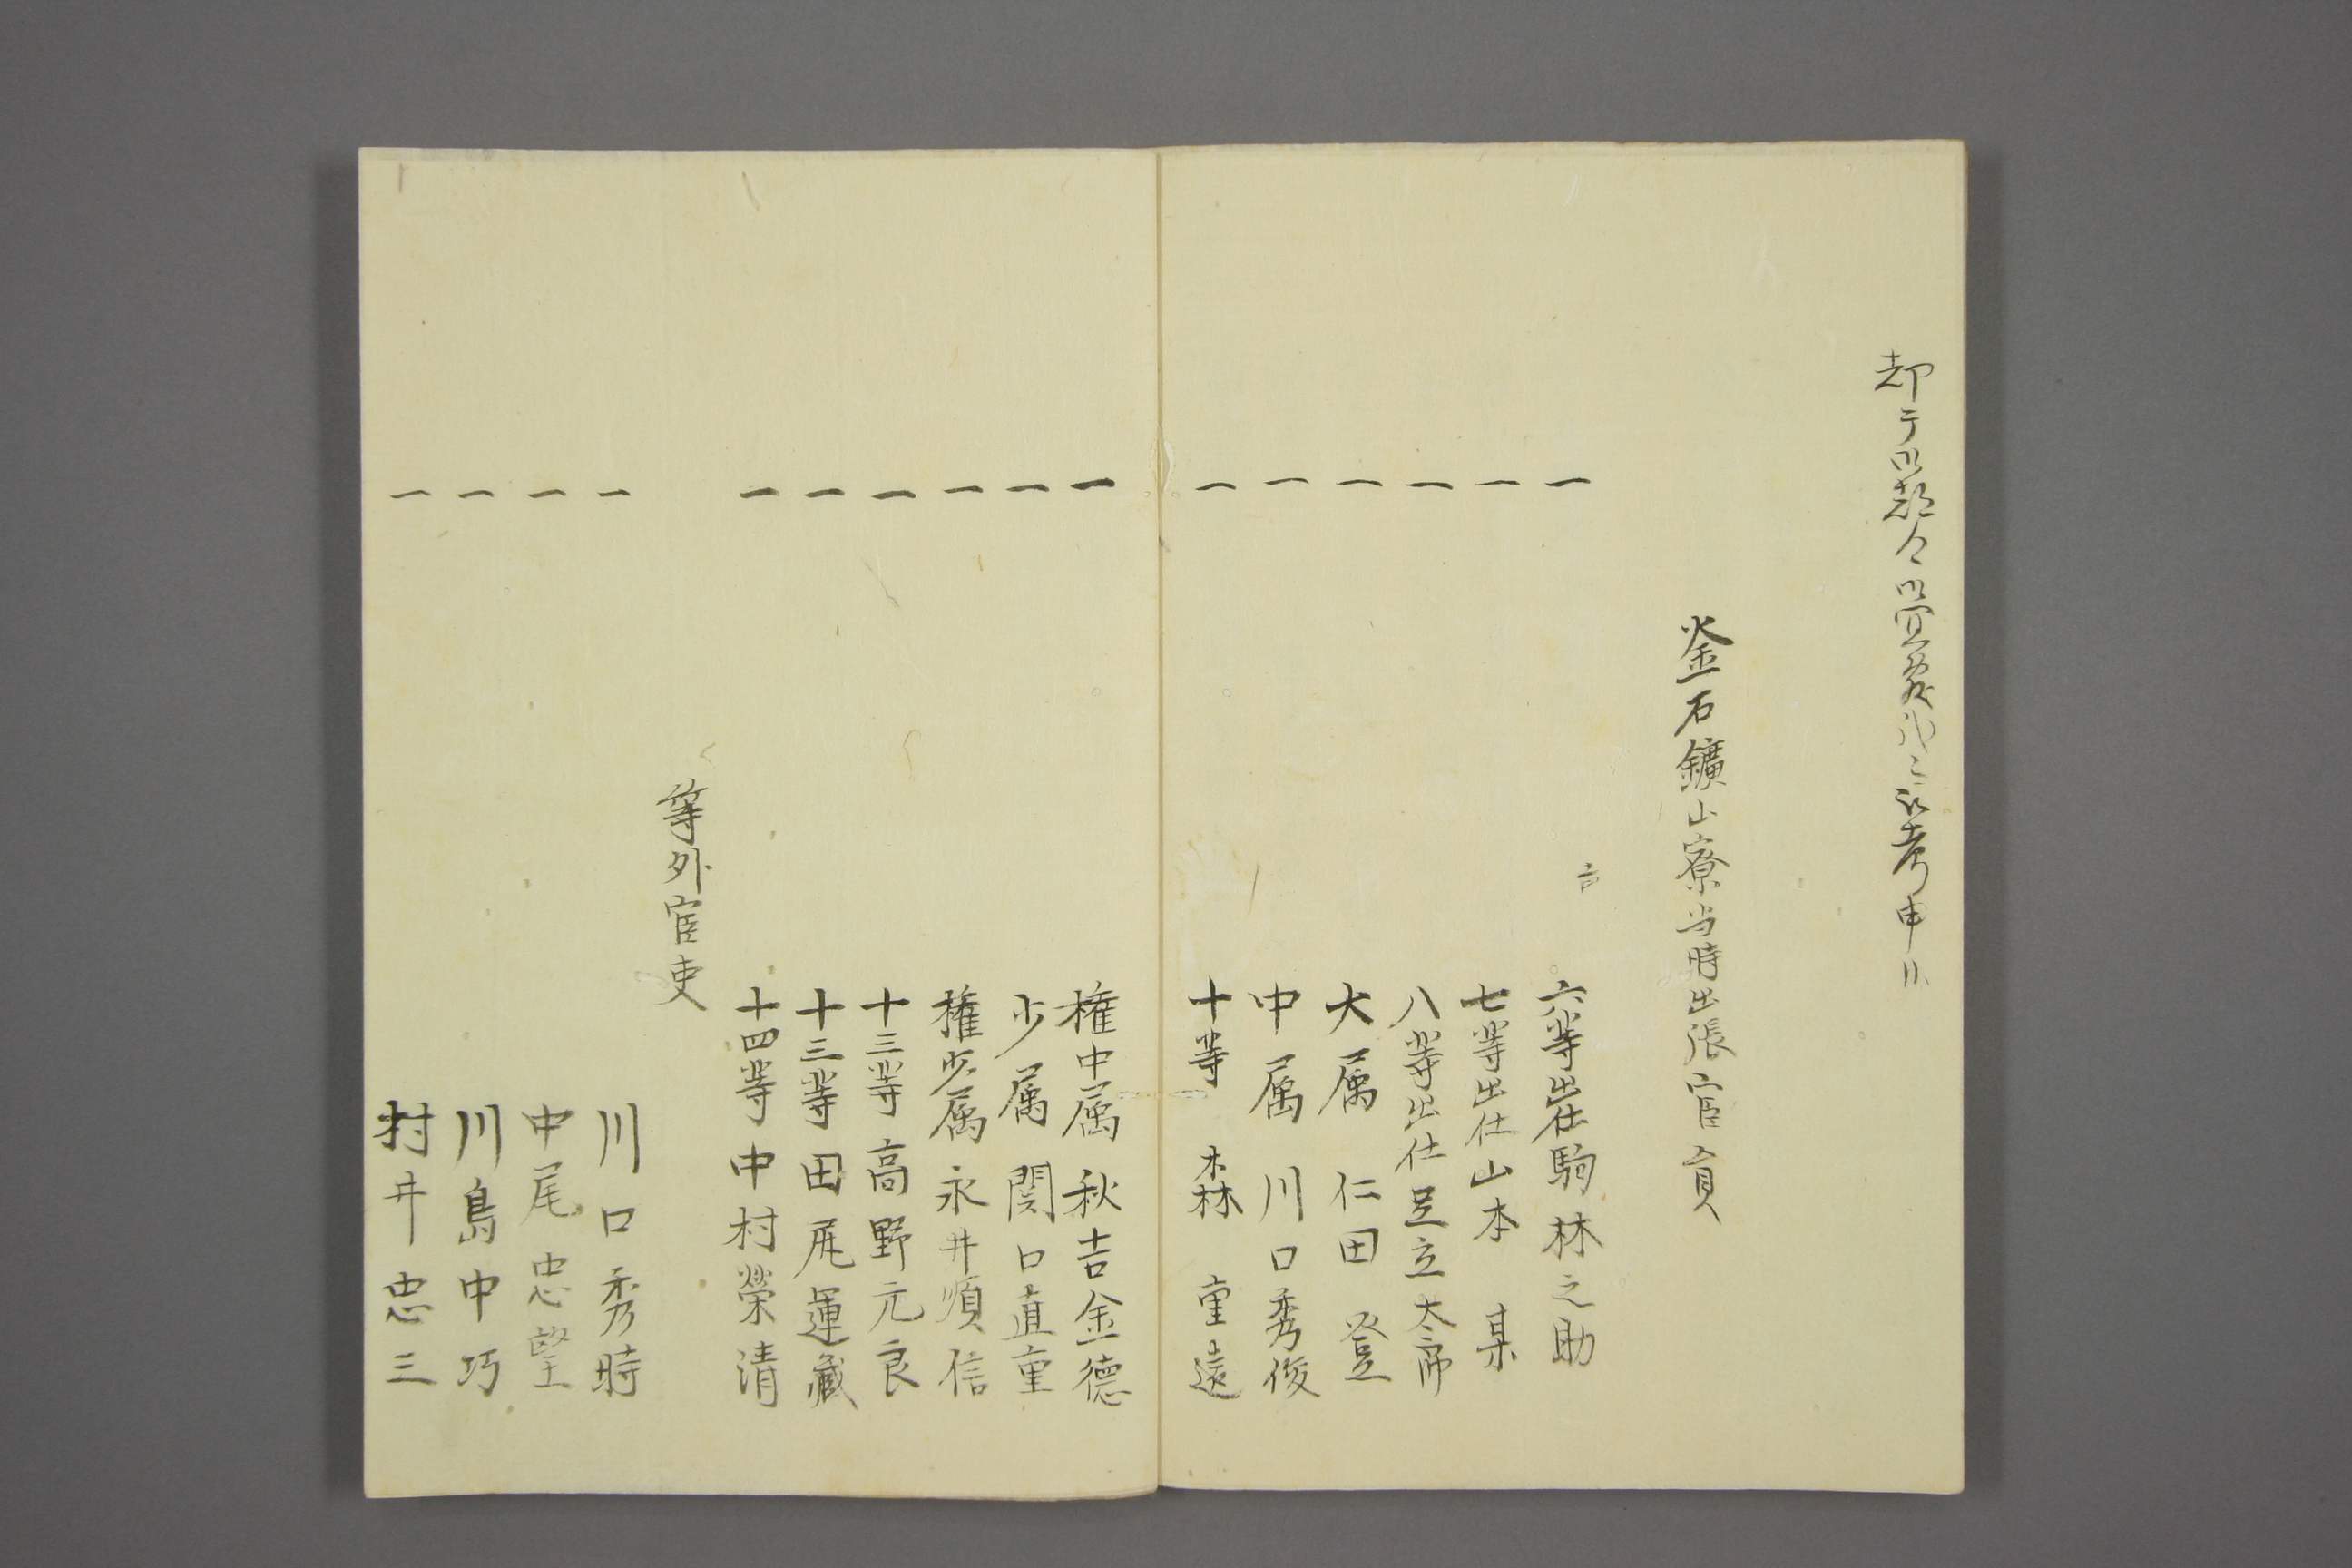 却テ御都合御宜敷
釜石鑛山寮当時出張官員
一 六等出仕駒林之助
一 七等出仕山本 某
一 八等出仕足立太郎
一 大属 仁田 登
一 中属 川口秀俊
一 十等 森 重遠
一 権中属 秋吉金徳
一 少属 関口直重
一 権少属 永井順信
一 十三等 高野元良
一 十三等 田尾運藏
一 十四等 中村榮清
等外官吏
一 川口秀時
一 中尾忠望
一 川島中巧
一 村井忠三